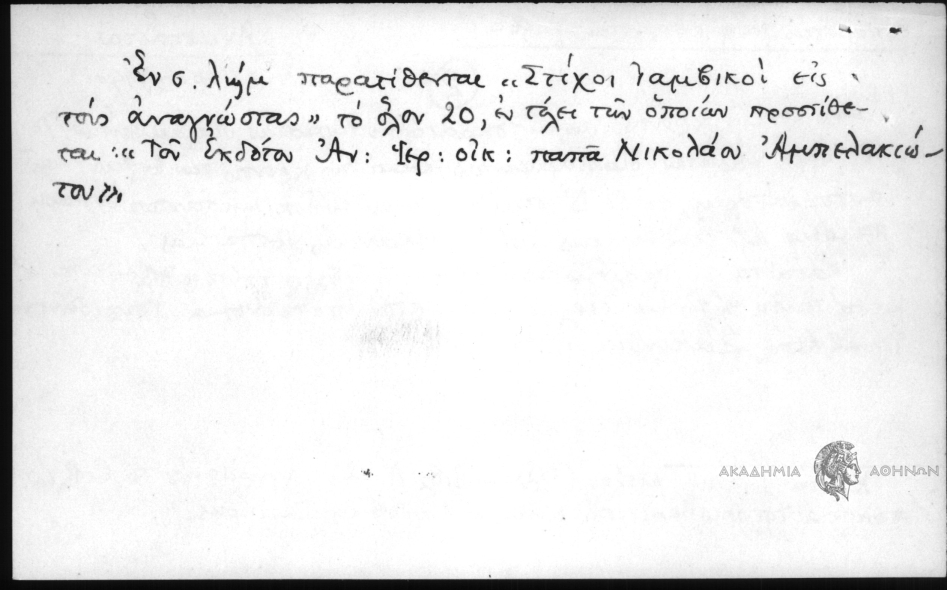 Ἐν σ. ληʹμʹ παρατίθενται «Στίχοι Ἰαμβικοὶ εἰς
τοὺς ἀναγνώστας» τὸ ὅλον 20, ἐν τέλει τῶν ὁποίων προστίθε-
ται: «Τοῦ Ἐκδότου Ἀν: Ἱερ: οἰκ: παπᾶ Νικολάου Ἀμπελακιώ-
του»,
ΑΚΑΔΗΜΙΑ ΑΘΗΝΩΝ